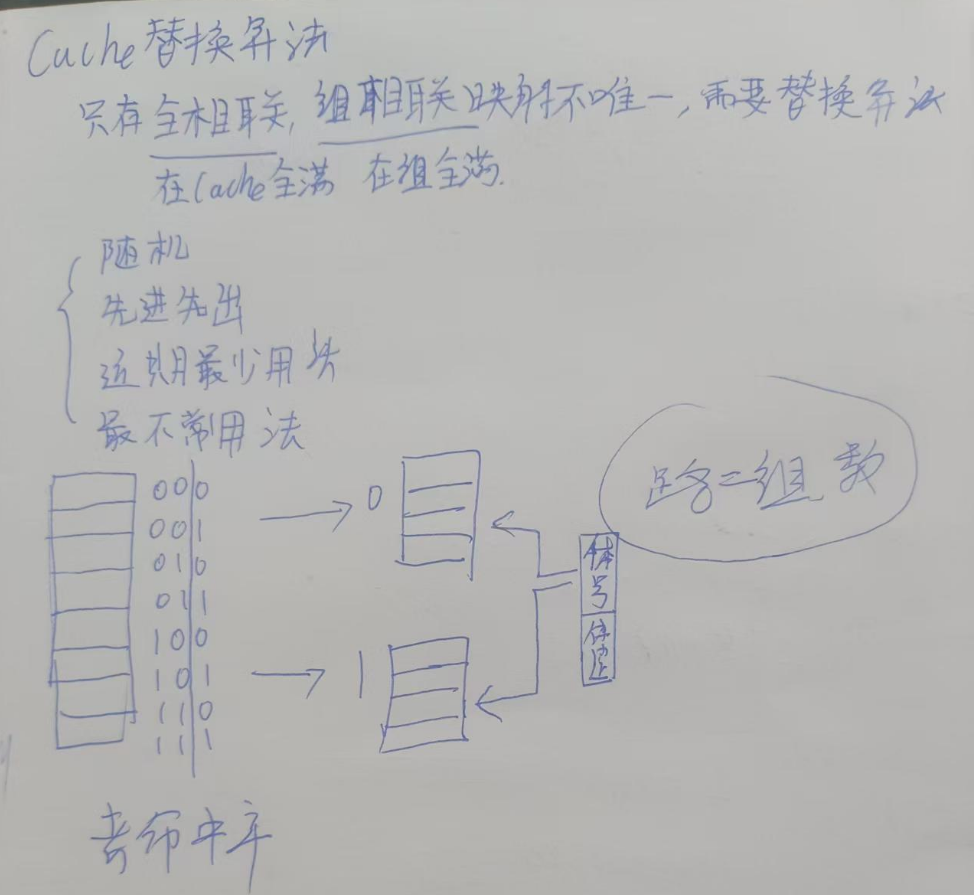 Cache替换算法
只有全相联,组相联映射不唯一,需要替换算法
在Cache全满 在组全满.
随机
先进先出
近期最少用法
最不常用法
000
001
010
011
100
101
110
111
0
1
体号
体
路=组 数
考命中率